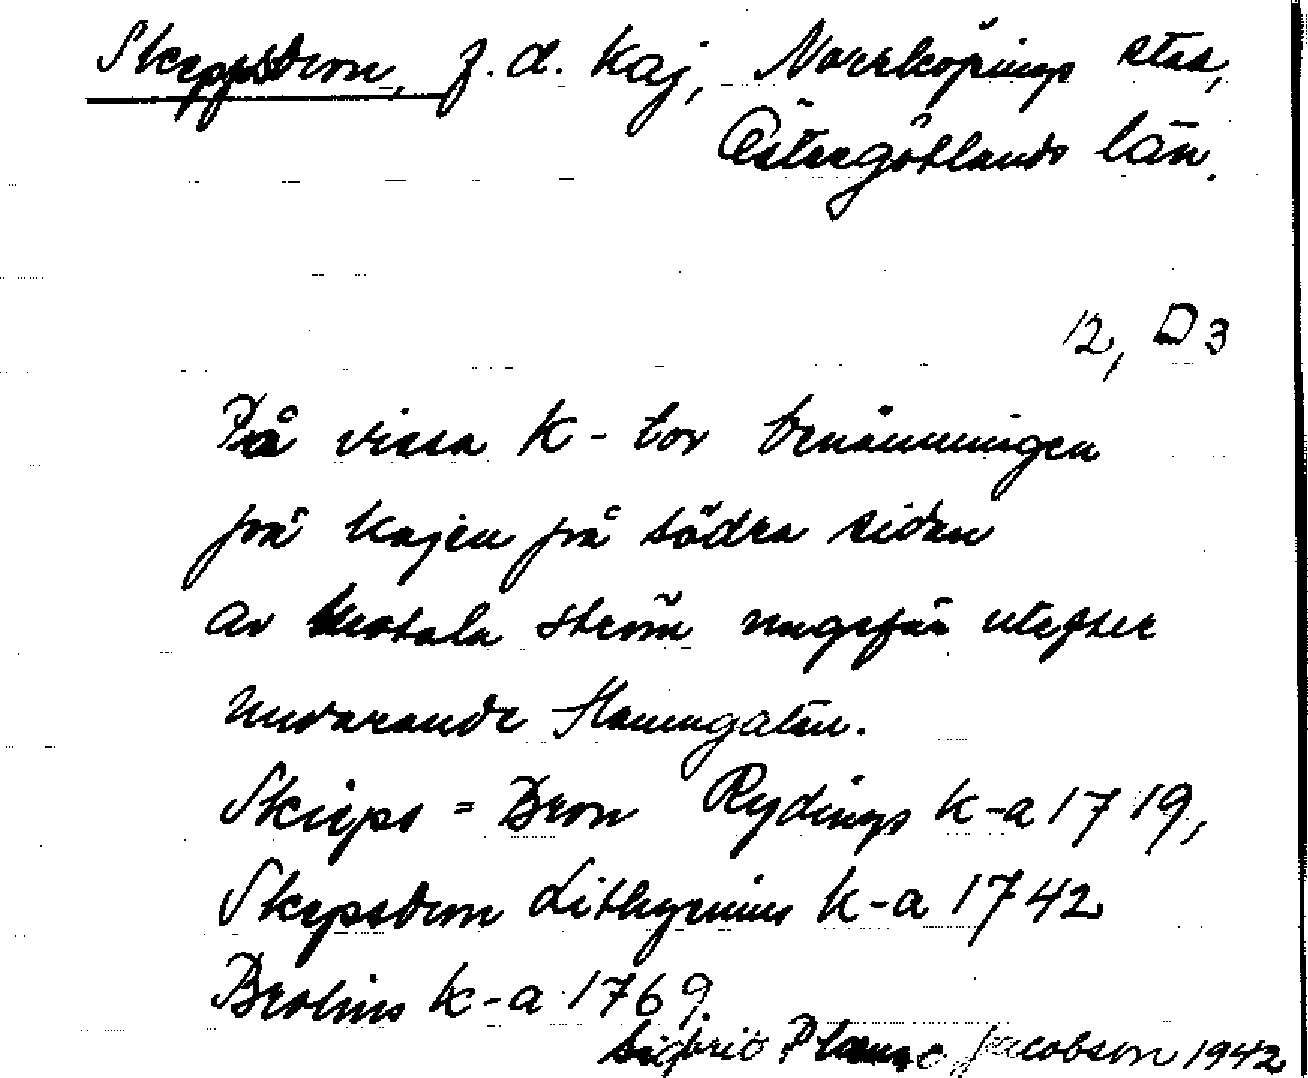 Skeppsbron, f. d. kaj, Norrköpings stad,
Östergötlands län.
12, D3
På vissa k-tor benämningen
på kajen på södra sidan
av Motala ström ungefär utefter
nuvarande Hamngatan.
Skieps=Bron Rydings k-a 1719,
Skepsbron Lithzenius k-a 1742
Brolins k-a 1769.
Sigfrid Jacobson 1942